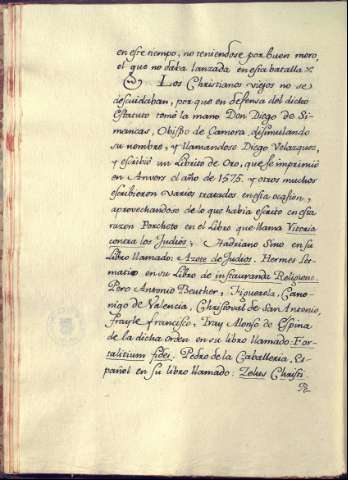 en este tiempo, no teniendose por buen moro,
el que no daba lanzada en esta batalla.
Los Christianos viejos no se
descuidaban, porque en defensa del dicho
Estatuto tomó la mano Don Diego de Si-
mancas, Obispo de Camora, disimulando
su nombre, y llamandose Diego Velazquez,
y escribió un Librito de Oro, que se imprimió
en Anvers el año de 1575. y otros muchos
escribieron varios tratados en esta ocasion,
aprovechandose de lo que habia escrito en esta
razon Porcheto en el Libro que llama Victoria
contra los Judios; Hadriano Sino en su
Libro llamado: Azote de Judios. Hermes Le-
matio en su Libro de instauranda Religione.
Pero Antonio Beuther, Figuerola, Cano-
nigo de Valencia, Chrisptoval de San Antonio,
frayle francisco, Fray Alonso de Espina
de la dicha orden en su libro llamado: For-
talitium fidei. Pedro de la Caballeria, Es-
pañol en su libro llamado: Zelus Christi